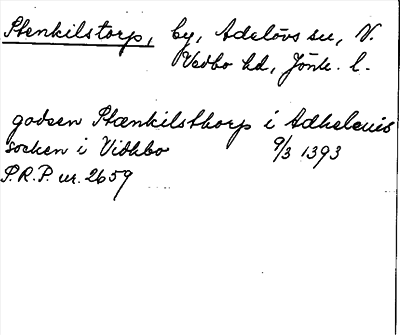 Stenkilstorp, by, Adelövs sn, V.
Vedbo hd, Jönk. l.
godsen Stænkilsthorp i Adhelouis
socken i Vidhbo 9/3 1393
P.R.P. nr. 2659